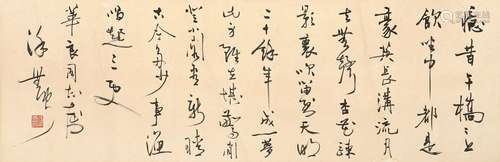 憶昔午橋々上
飲坐中都是
豪英長溝流月
去無聲杏花疎
影裏吹笛到天明
二十餘年成一夢
此身雖在堪驚閒
登小閣看新晴
古今多少事漁
唱起三更
華良同志
徐無聞